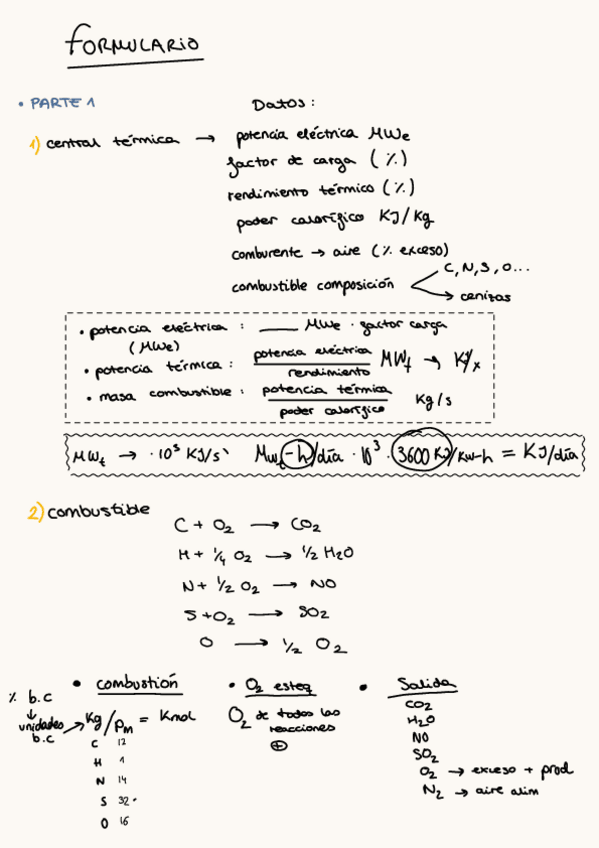 FORMULARIO
• PARTE 1
Datos:
1) central térmica → potencia eléctrica MWe
factor de carga (%)
rendimiento térmico (%)
poder calorífico KJ/Kg
comburente → aire (% exceso)
combustible composición
C, N, S, O...
→ cenizas
• potencia eléctrica : ___ MWe · factor carga
(MWe)
• potencia térmica : potencia eléctrica / rendimiento MWt → KJ/x
• masa combustible : potencia térmica / poder calorífico Kg/s
MWt → ·10³ KJ/s MWt-h/día · 10³ · 3600 KJ/KW-h = KJ/día
2) combustible
C + O₂ → CO₂
H + ¼ O₂ → ½ H₂O
N + ½ O₂ → NO
S + O₂ → SO₂
O → ½ O₂
% b.c
↓
unidades
b.c
• combustión
Kg/Pm = Kmol
C 12
H 1
N 14
S 32
O 16
• O₂ esteq
O₂ de todas las
reacciones
⊕
• Salida
CO₂
H₂O
NO
SO₂
O₂ → exceso + prod
N₂ → aire alim